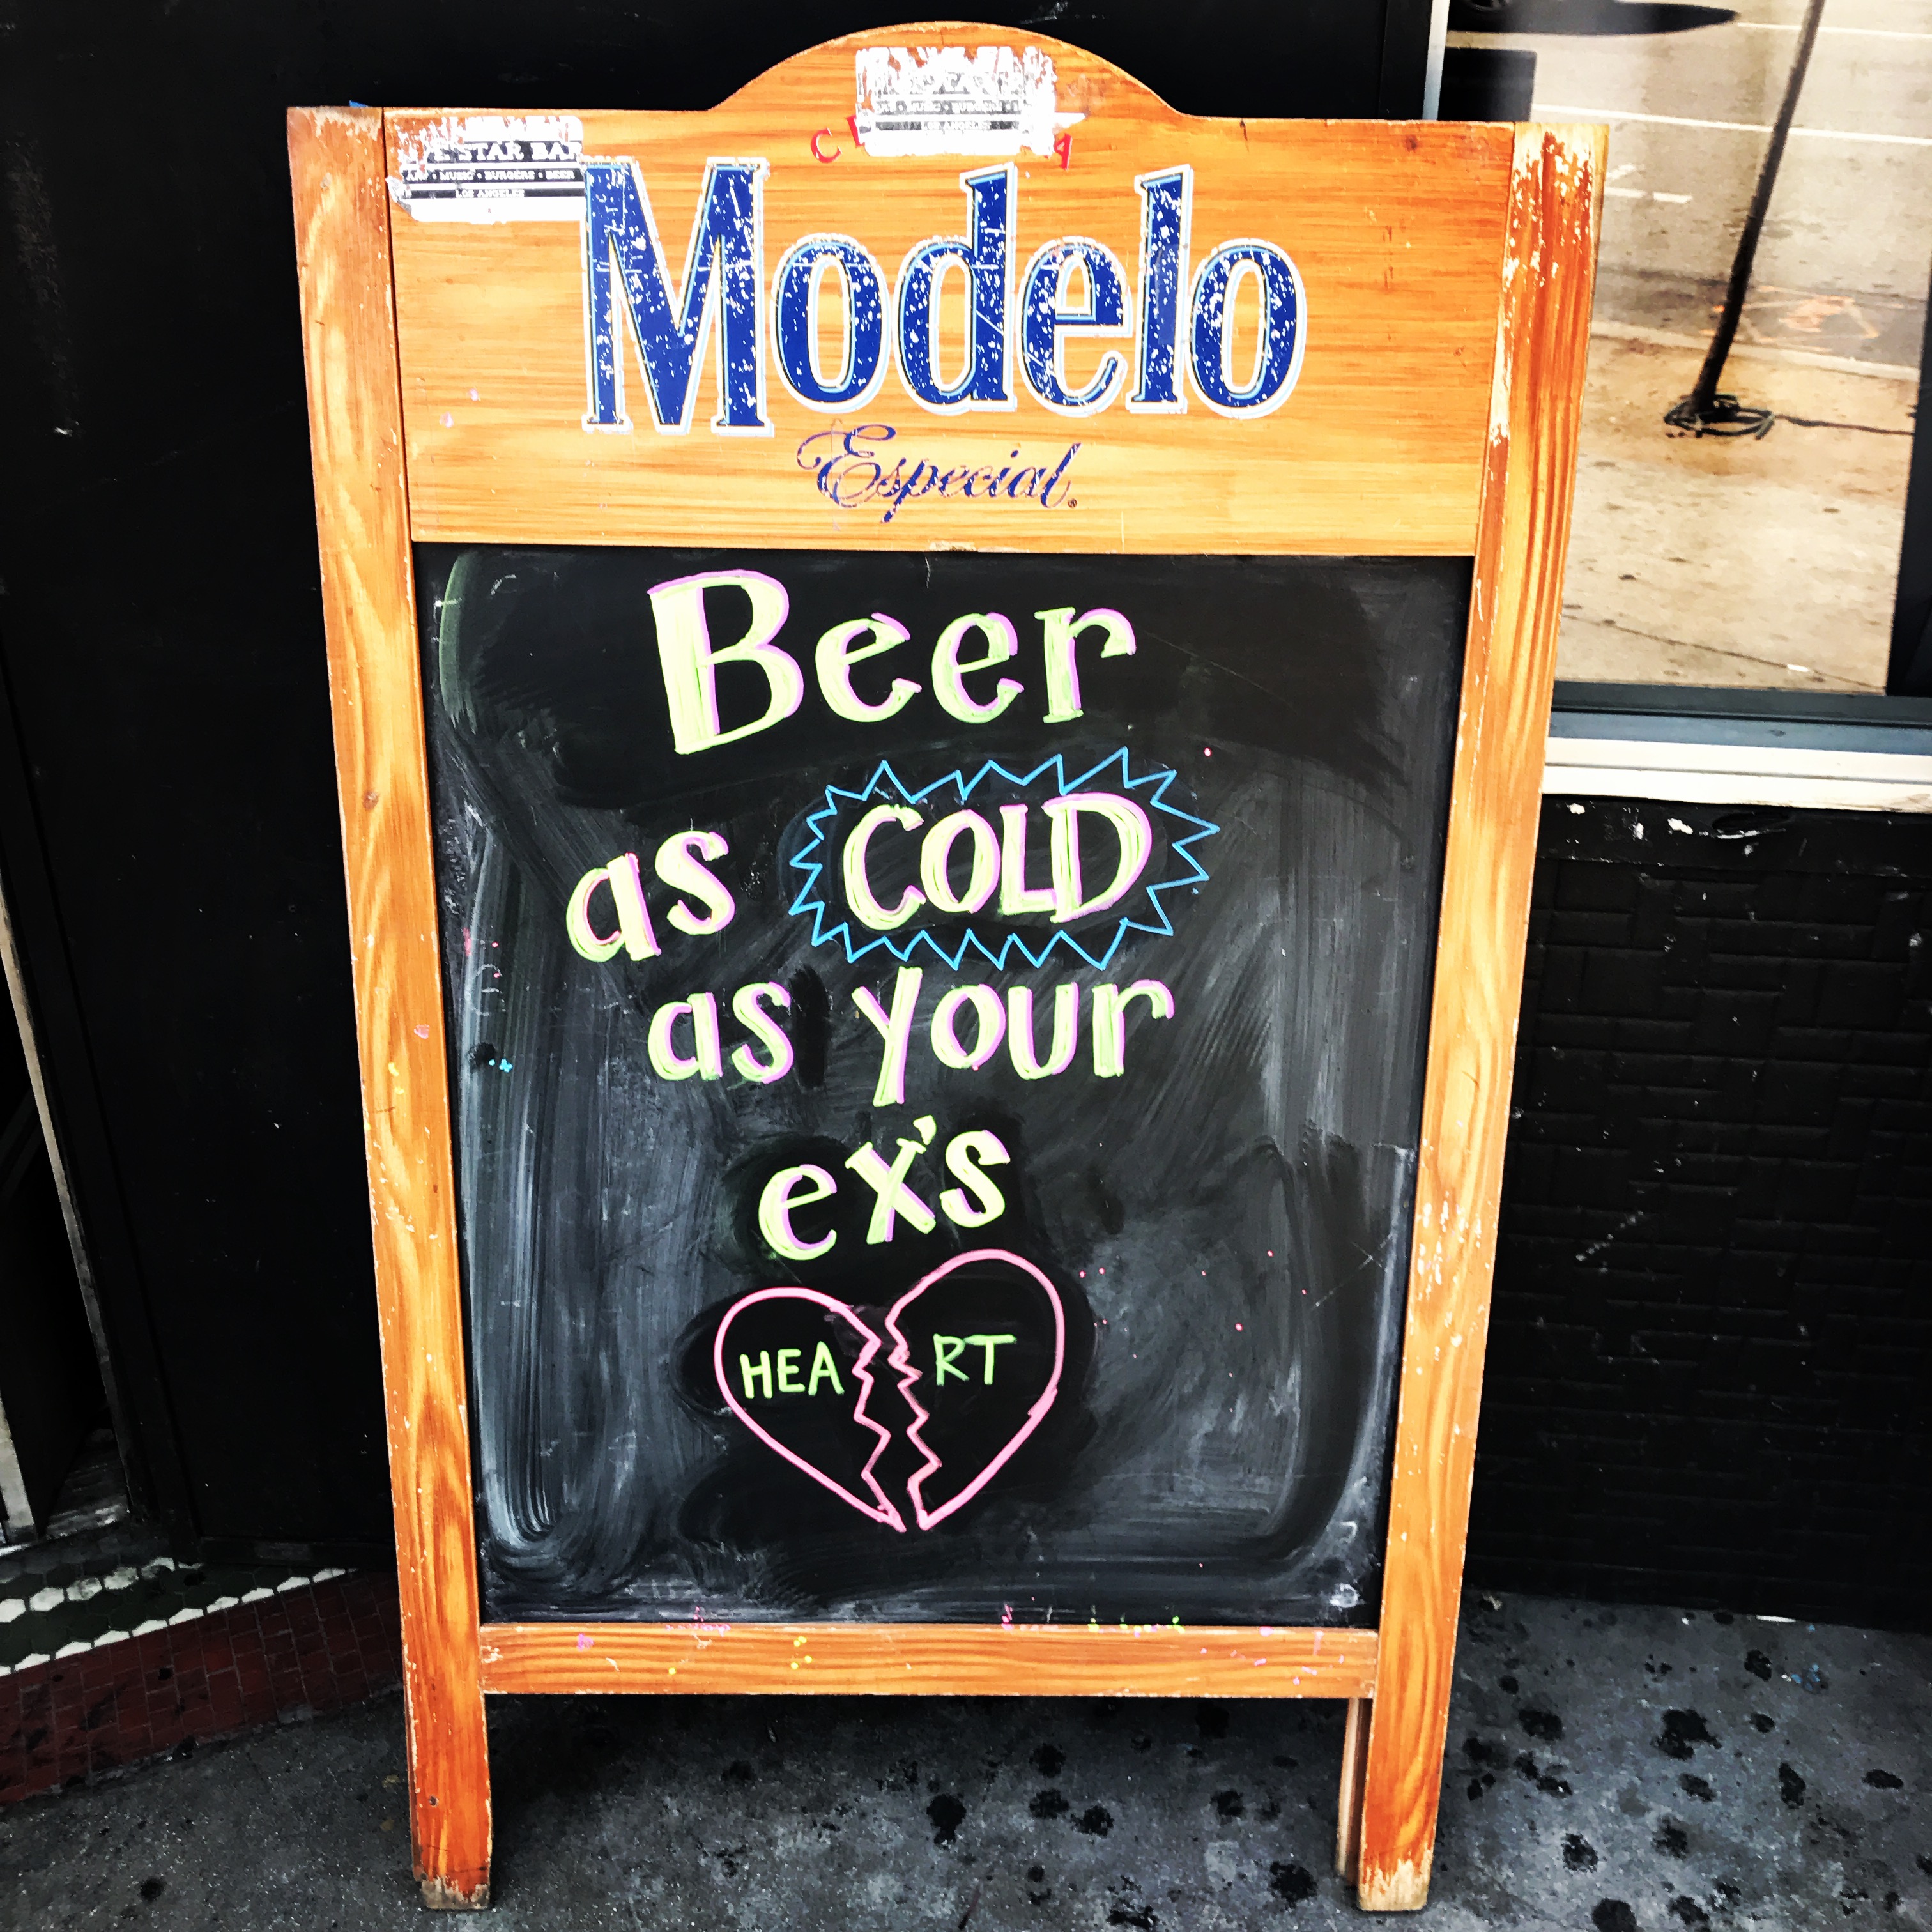 STAR BAR
MUSIC • BURGERS • BEER
LOS ANGELES
LOS ANGELES
Modelo
Especial
Beer
as COLD
as your
ex's
HEA RT